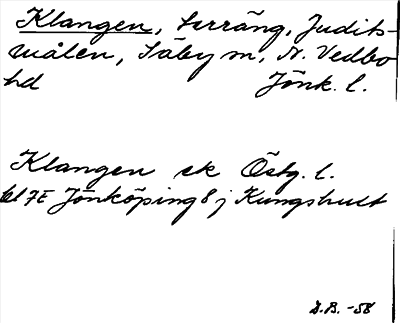 Klangen, terräng, Judits-
målen, Säby sn, N. Vedbo
hd Jönk. l.
Klangen sk Östg. l.
bl 7E Jönköping 8 j Kungshult
D.B. -58